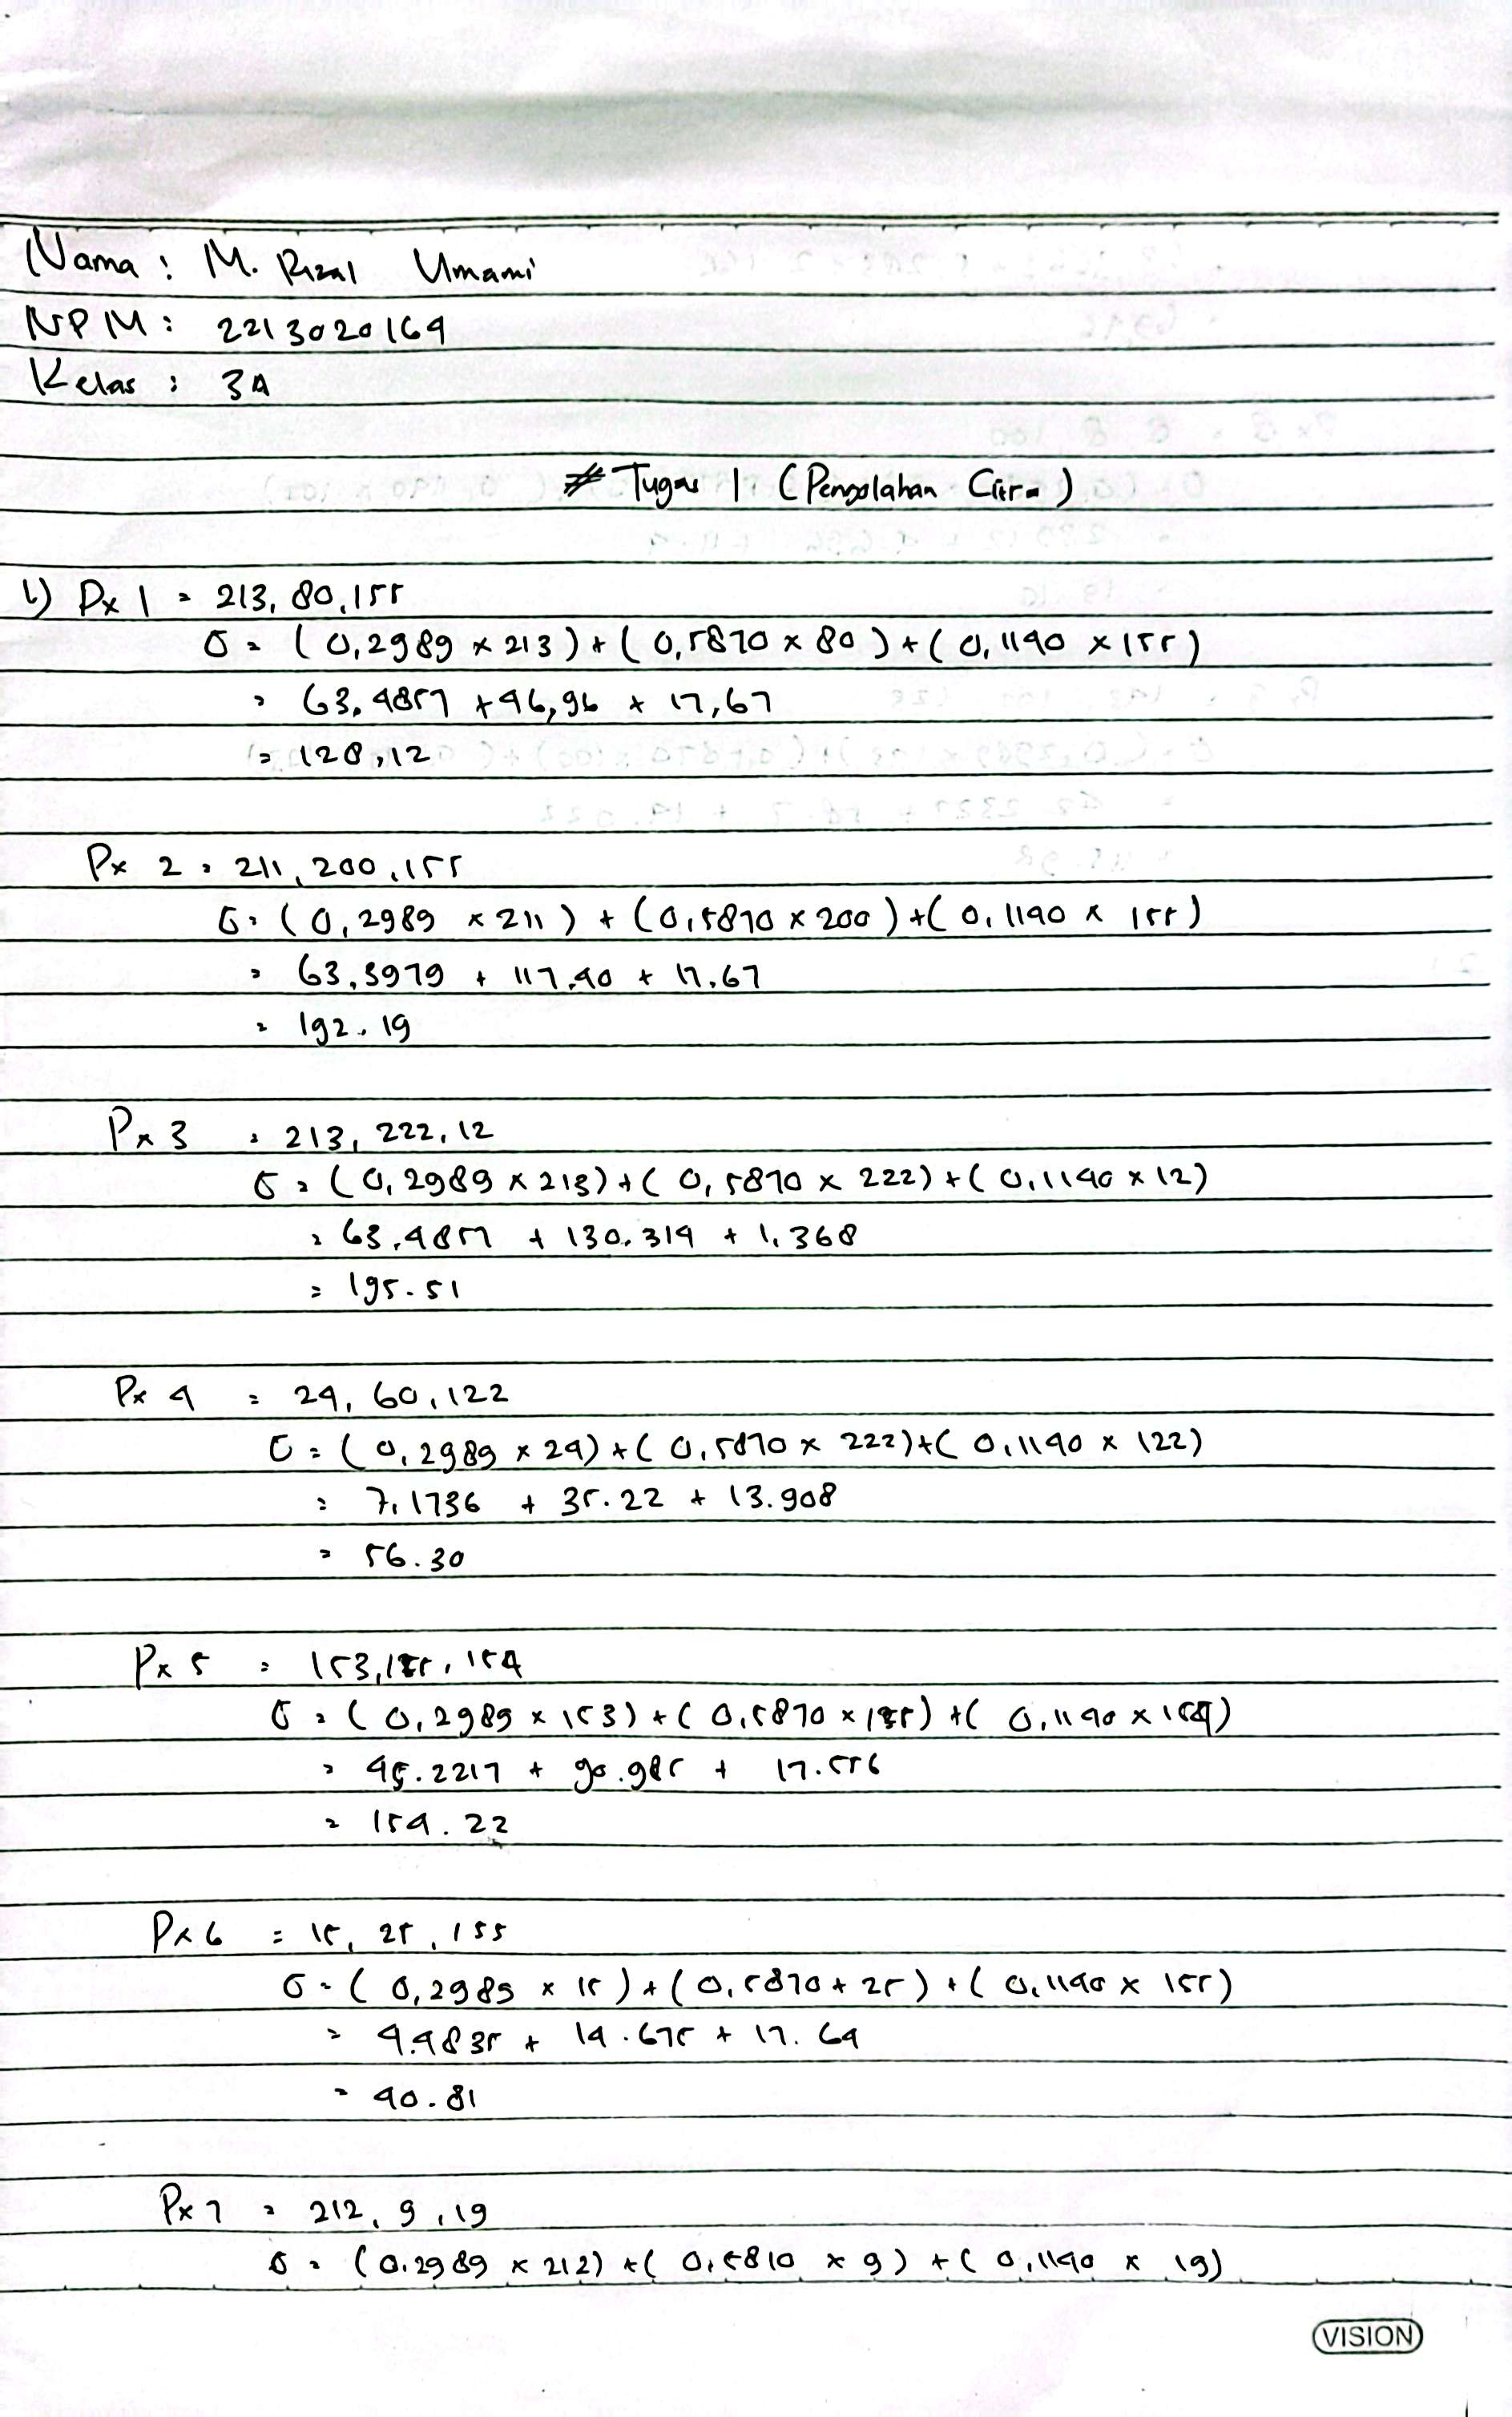 Nama : M. Rizal Umami
NPM : 2213020164
Kelas : 3A
# Tugas 1 (Pengolahan Citra)
1) Px 1 = 213, 80, 155
σ = (0,2989 x 213) + (0,5870 x 80) + (0,1140 x 155)
= 63,4857 + 46,96 + 17,67
= 128,12
Px 2 = 211, 200, 155
σ = (0,2989 x 211) + (0,5870 x 200) + (0,1140 x 155)
= 63,3979 + 117,40 + 17,67
= 192.19
Px 3 = 213, 222, 12
σ = (0,2989 x 213) + (0,5870 x 222) + (0,1140 x 12)
= 63,4857 + 130,314 + 1,368
= 195.51
Px 4 = 24, 60, 122
σ = (0,2989 x 24) + (0,5870 x 222) + (0,1140 x 122)
= 7,1736 + 35.22 + 13.908
= 56.30
Px 5 = 153, 155, 154
σ = (0,2989 x 153) + (0,5870 x 155) + (0,1140 x 154)
= 45.2217 + 90.985 + 17.556
= 154.22
Px 6 = 15, 25, 155
σ = (0,2989 x 15) + (0,5870 + 25) + (0,1140 x 155)
= 4.4835 + 14.675 + 17.64
= 40.81
Px 7 = 212, 9, 19
σ = (0.2989 x 212) + (0,5810 x 9) + (0,1140 x 19)
VISION